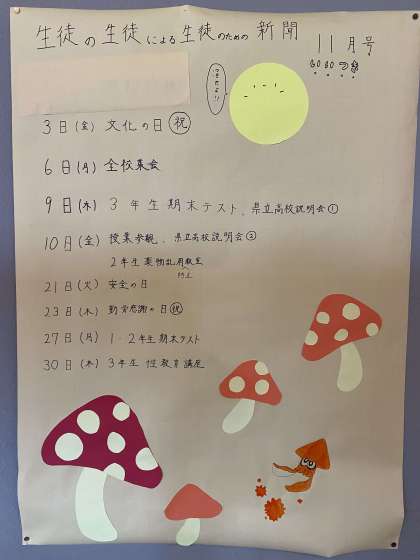 生徒の生徒による生徒のための 新聞
11月号
3日(金) 文化の日 祝
6日(月) 全校集会
9日(木) 3年生期末テスト、県立高校説明会①
10日(金) 授業参観、県立高校説明会②
2年生薬物乱用教室
防止
21日(火) 安全の日
23日(木) 勤労感謝の日 祝
27日(月) 1・2年生期末テスト
30日(木) 3年生 性教育講座